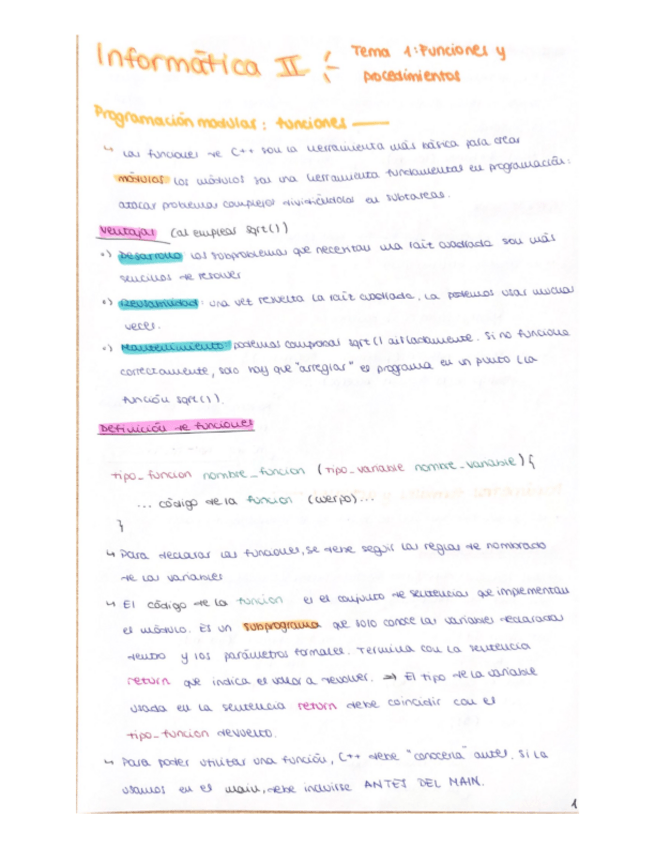 Informática II : Tema 1: Funciones y
procedimientos
Programación modular: funciones
↳ Las funciones de C++ son la herramienta más básica para crear
módulos. Los módulos son una herramienta fundamental en programación:
atacar problemas complejos dividiéndolos en subtareas.
Ventajas (al emplear sqrt())
•) Desarrollo: los subproblemas que necesitan una raíz cuadrada son más
sencillos de resolver
•) Reusabilidad: una vez resuelta la raíz cuadrada, la podemos usar muchas
veces.
•) Mantenimiento: podemos comprobar sqrt() aisladamente. Si no funciona
correctamente, solo hay que "arreglar" el programa en un punto (la
función sqrt()).
Definición de funciones
tipo_funcion nombre_funcion (tipo_variable nombre_variable){
... código de la funcion (cuerpo)...
}
↳ Para declarar las funciones, se debe seguir las reglas de nombrado
de las variables
↳ El código de la funcion es el conjunto de sentencias que implementan
el módulo. Es un subprograma que solo conoce las variables declaradas
dentro y los parámetros formales. Termina con la sentencia
return que indica el valor a devolver. ⇒ El tipo de la variable
usada en la sentencia return debe coincidir con el
tipo_funcion devuelto.
↳ Para poder utilizar una función, C++ debe "conocerla" antes. Si la
usamos en el main, debe incluirse ANTES DEL MAIN.
1